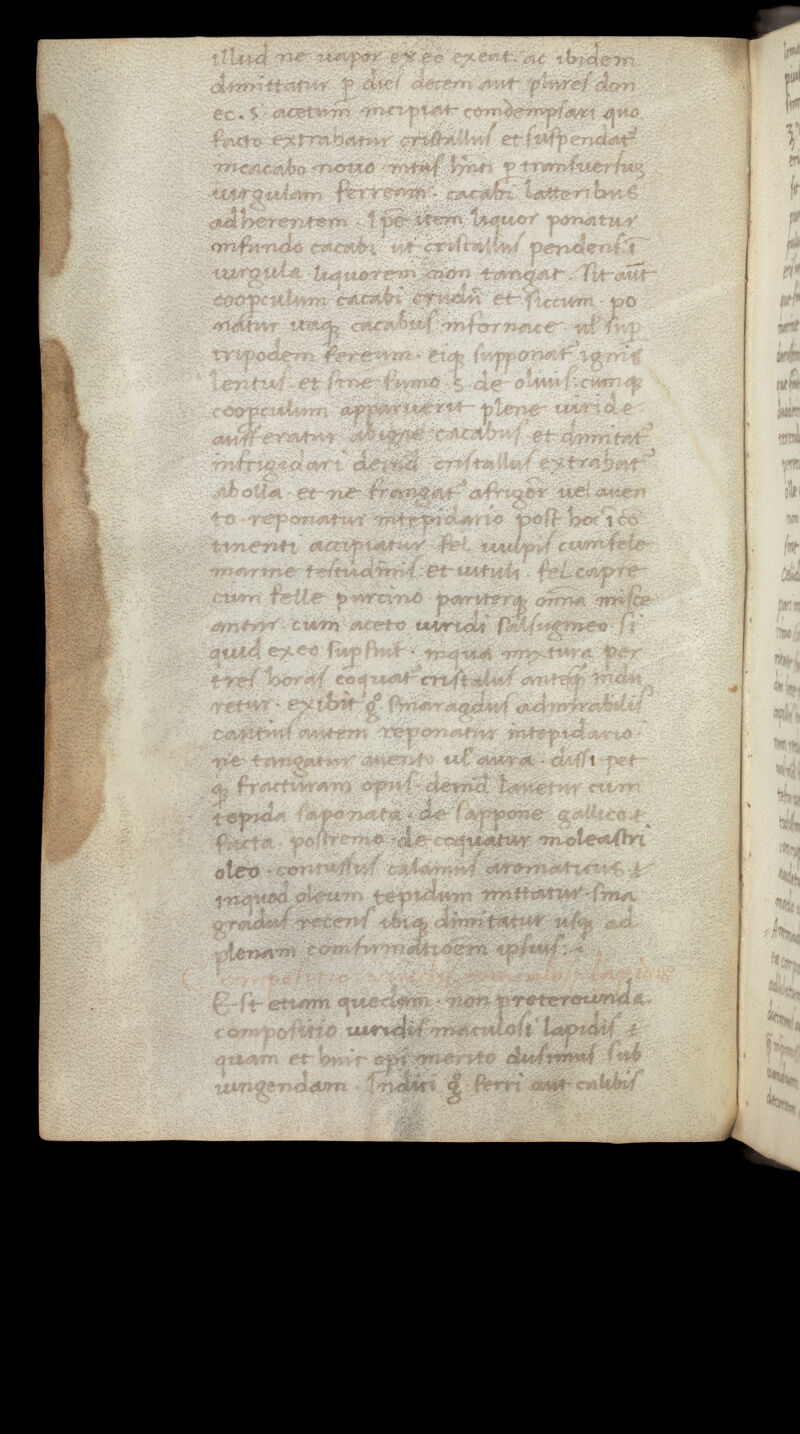 illud ne uapor ex eo exeat. ac ibidem
dimittatur p̱ dies decem aut plures don
ec. s. acetum incipiat comdempsari quo
facto extrahatur cristallus et suspendat᷒
in cacabo nouo intus lıniti p̱ transuersuꝫ
uirgulam ferream. cacabi latteribus
adherentem. Ipse item liquor ponatur
in fundo cacabi ut cristallus pendens ī
uirgula liquorem non tangat. Sit aūt
coopculum cacabi crudū et siccum. po
natur itaqꝫ cacabus in fornace ul' sup̱
tripodem fereum. eiqꝫ supponat᷒ ignis
lentus. et sine fumo. s. de oliuis. cumqꝫ
coop̱culum apparuerit plene uiride
aufferatur ab igne cacabus et dimitat᷒
infrigidari deind cristallus extrahat᷒
ab olla et ne frangat᷒ a frigōr uel auen
to. reponatur in tepidario post hoc ī cō
tinenti accipiatur fel uulpis cum fele
marine testudinis. et uituli. fel capre
cum felle porcino. pariterqꝫ omīa misce
antur. cum aceto uiridi salsugineo. si
quid ex eo sup̱fuit. in qua mixtura per
tres horas coquat᷒ cristalus anteq̄ᷓ indu
retur. exibit gͦ smaragdus admirabilis
cautius autem reponatur in tepidario.
ne tangatur auento ul' aura. dissi pet
qꝫ fracturam opus. deind lauetur cum
tepida saponata. de sappone gallico
facta. postremo. de coquatur in oleastri
oleo. contussus calamus aromaticus
in quod oleum tepidum mittatur. sma
gradus recens ibiqꝫ dimitatur usqꝫ ad
plenam comfirmatiōem ipsius.
Compositio uiridis maculosi lapidis
Est etiam quedam. non preterounda.
compositio uiridis maculosi lapidis
quam et huic opi merito duximus sub
iungendam. Indici gͦ ferri aut calibis